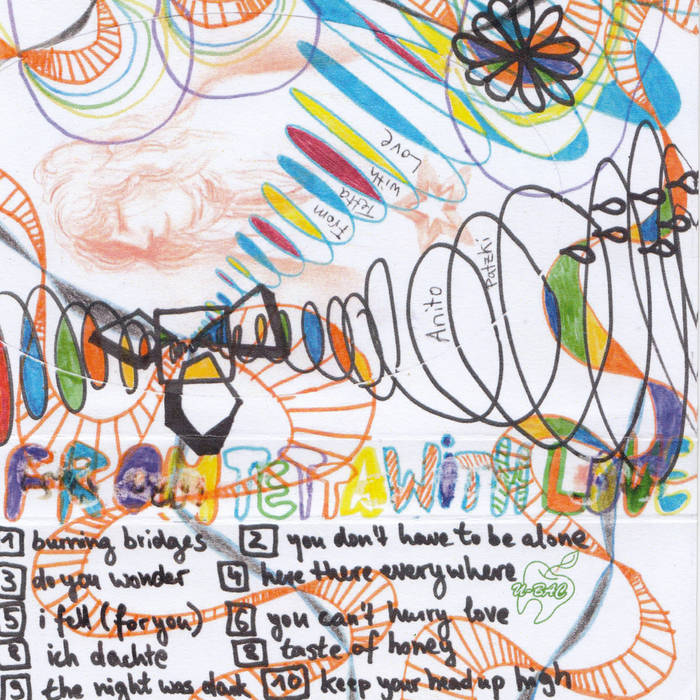 From
Tetta
with
Love
Anito
Patzki
FROM TETTA WiTH LOVE
1 burning bridges 2 you don't have to be alone
3 do you wonder 4 here there everywhere
U-BAC
5 i fell (for you) 6 you can't hurry love
ich dachte 8 taste of honey
9 the night was dark 10 keep your head up high